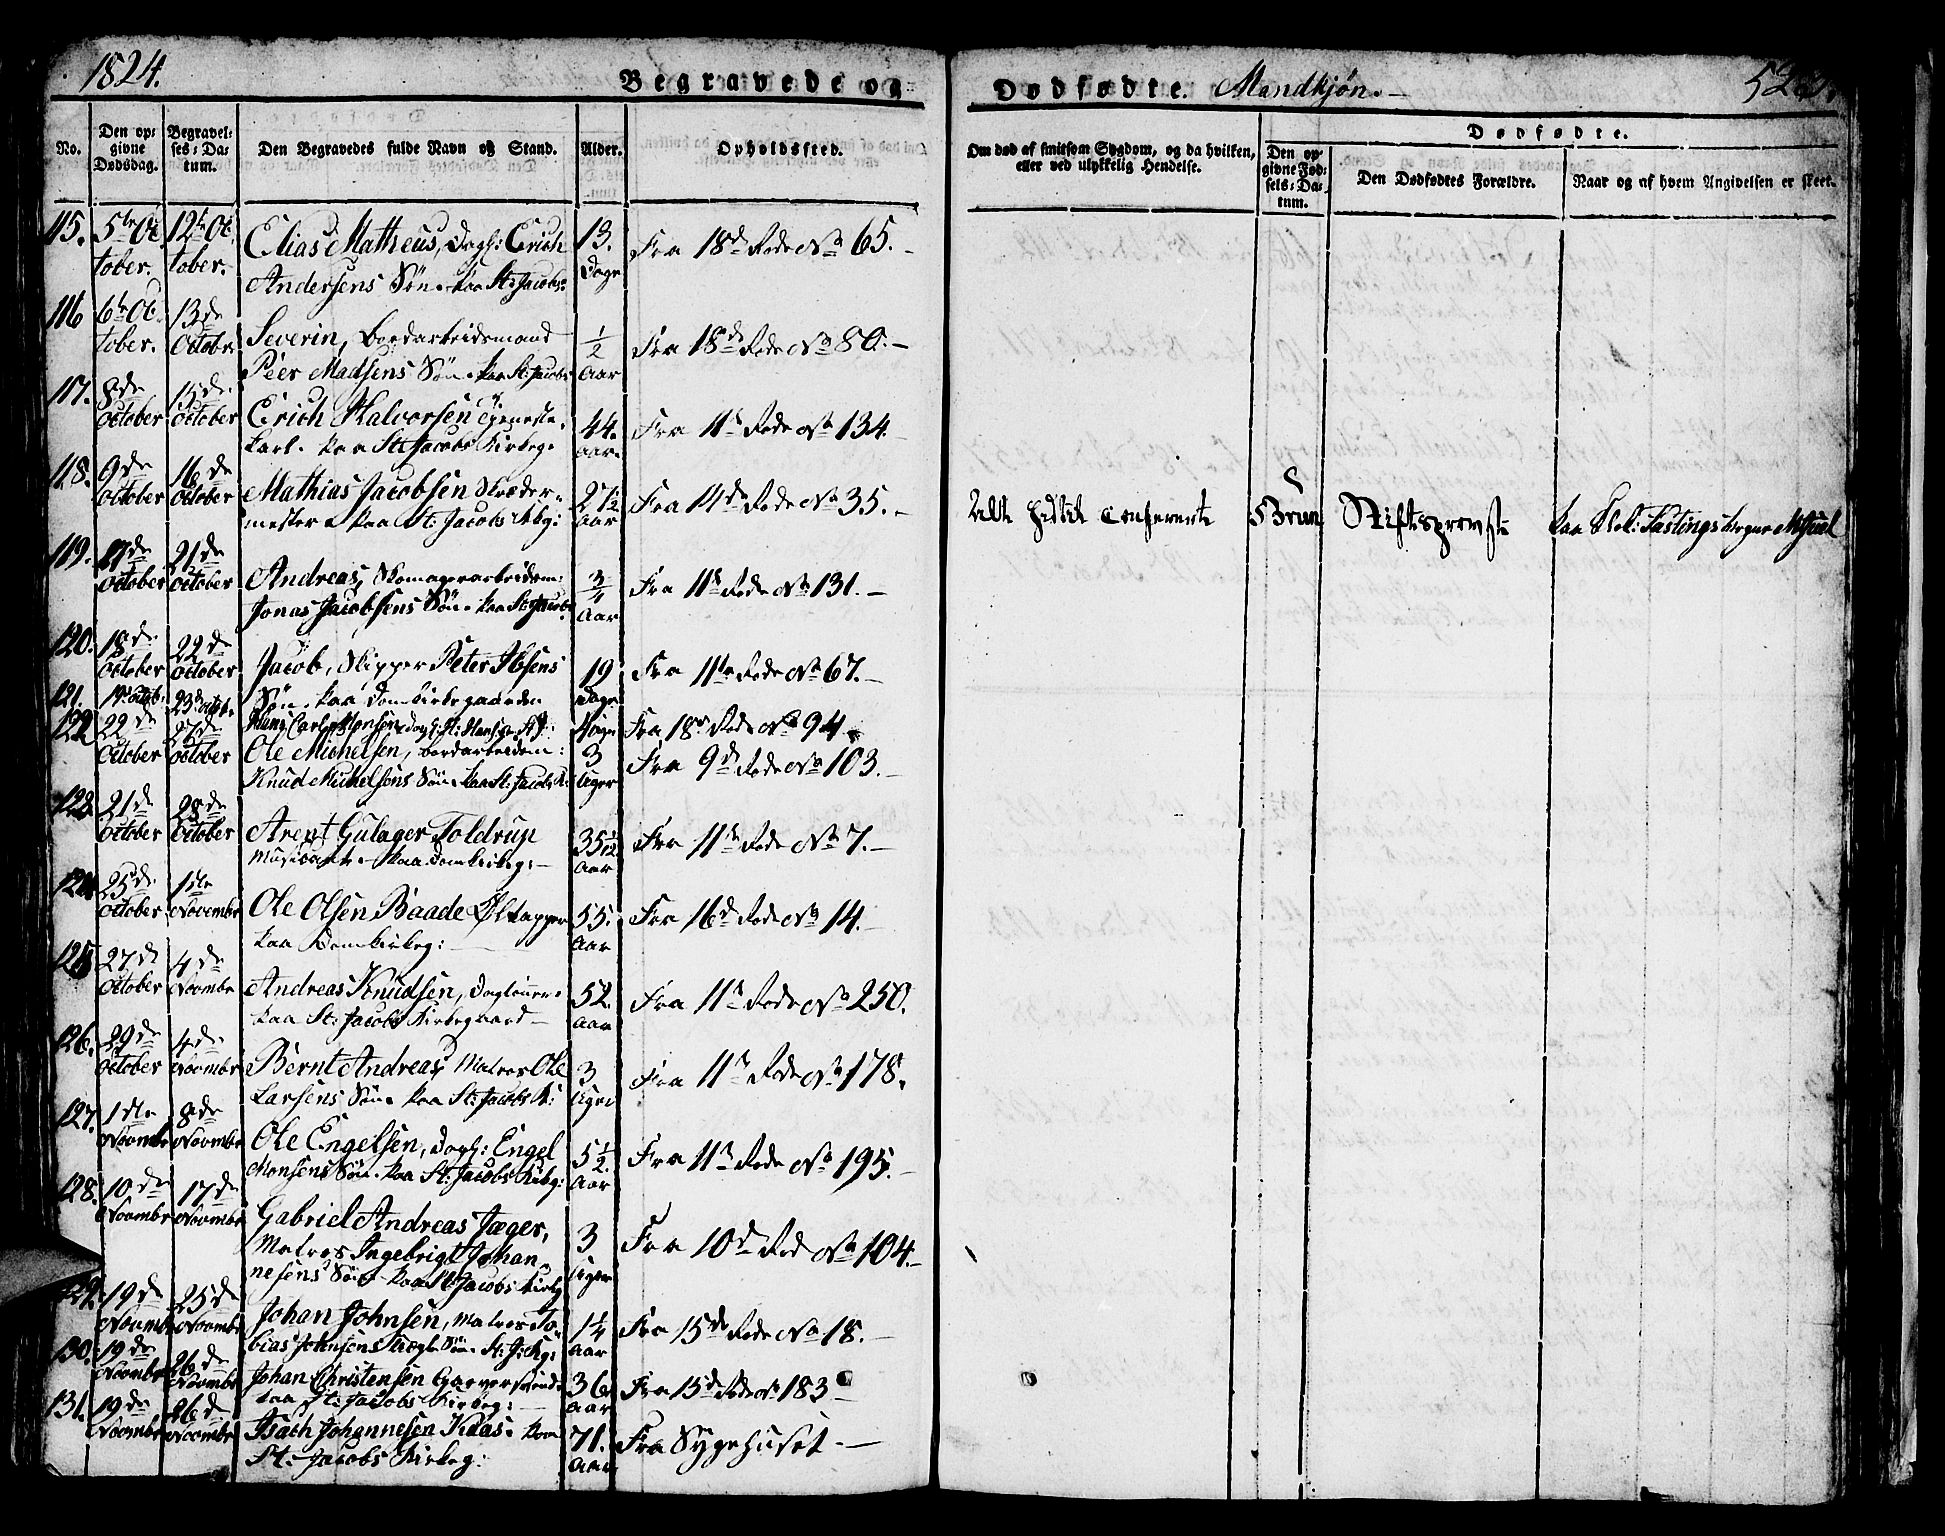 1824.
Begravede og
Dødfødte. Mandkjøn.
No.
Den opgivne Dødsdag.
Begravelses-Datum.
Den Begravedes fulde Navn og Stand.
Alder.
Opholdssted.
Om død af smitsom Sygdom, og da hvilken, eller ved ulykkelig Hendelse.
Dødfødte.
Den opgivne Fødsels-Datum.
Den Dødfødtes Forældre.
Naar og af hvem Angivelsen er skeet.
115. 5te October. 12te October. Elias Matheus, Dagl: Erich 13. Dage Fra 18de Rode No 65.
Andersens Søn. paa St: Jacobs
116 6te October. 13de October Severin, Bordarbeidsmand 1/2 Aar Fra 18de Rode No 80.
Peer Madsens Søn. paa St: Jacobs
117. 8de October 15de October Erich Halvorsen Tjeneste- 44. Aar. Fra 11te Rode No 134.
karl. paa St: Jacobs Kirkeg.
118. 9de October 16de October Mathias Jacobsen Skræder- 27 1/2 Aar Fra 14de Rode No 35.
mester. paa St: Jacobs Kbg:
Stiftsprovst
119. 17de October 21de October Andreas, Skomagerarbeidsm: 3/4 Aar Fra 11te Rode No 131.
Jonas Jacobsens Søn. paa St: Jacobs
120. 18de October 22de October Jacob, Skipper Peter Ibsens 19 Dage Fra 11te Rode No 67.
Søn. paa Domkirkegaarden
121. 19de Octobr 23de Octobr Hans Carl Hansen Fra 18de Rode No 94
122 22de October 27de October Ole Michelsen, Bordarbeidsm: 3 Uger Fra 9de Rode No 103.
Knud Michelsens Søn. paa St: Jacobs K:
123. 21de October 28de October Arent Gulager Toldrup 35 Aar Fra 11te Rode No 7.
Musicant. paa Domkirkeg:
124. 25de October 1ste Novembr Ole Olsen Baade Øltapper 55. Aar Fra 16de Rode No 14.
paa Domkirkeg:
125 27de October 4de Novembr Andreas Knudsen, Dagleier. 52. Aar Fra 11te Rode No 250.
paa St: Jacobs Kirkegaard
126. 29de October 4de Novembr Bernt Andreas, Matros Ole 3 Uger Fra 11te Rode No 178.
Larsens Søn. paa St: Jacobs K:
127. 1ste Novembr 8de Novembr Ole Engelsen, Dagl: Engel 5 1/2 Aar Fra 11te Rode No 195.
Monsens Søn. paa St: Jacobs Kirkg:
128. 10de Novembr 17de Novembr Gabriel Andreas Jæger, 3 Uger Fra 10de Rod No 104.
Matros Ingebrigt Johan-
nesens Søn paa St: Jacobs Kirkg
129. 19de Novembr 25de Novembr Johan Johnsen, Matros To- 1 1/4 Aar Fra 15de Rode No 18.
bias Johnsens Søn. St: J: Kg:
130. 19de Novembr 26de Novembr Johan Christensen Garversvend 36 Aar Fra 15de Rode No 183
paa St: Jacobs Kirkeg:
131. 19de Novembr 26de Novembr Isach Johannesen Klas. paa 71. Aar Fra Sygehuset
St: Jacobs Kirkeg: